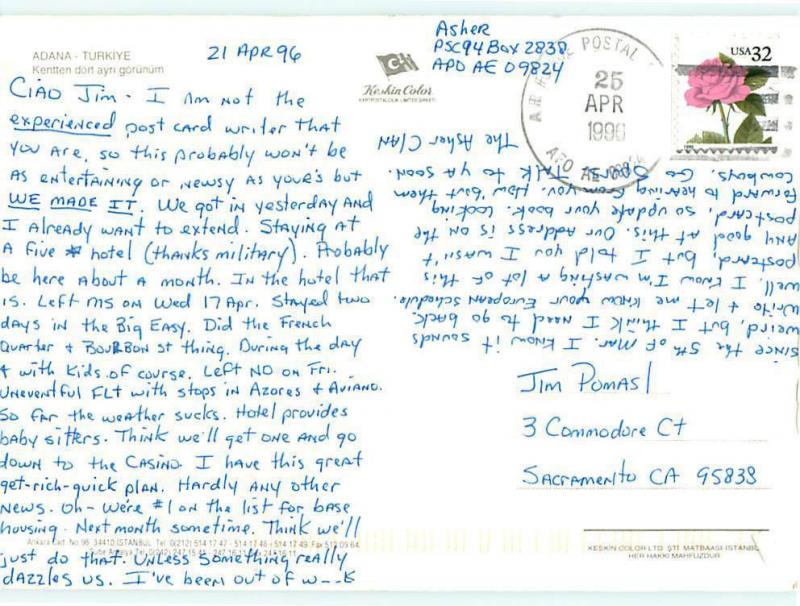 ADANA - TURKIYE
Kentten dört ayrı görünüm
21 APR 96
Keskin Color
Asher
PSC 94 Box 2838
APO AE 09824
POSTAL
25
APR
1996
APO AE
USA 32
CIAO JIM - I AM NOT the
experienced post card writer that
you are, so this probably won't be
as entertaining or newsy as your's but
WE MADE IT. We got in yesterday and
I already want to extend. Staying at
a five * hotel (thanks military). Probably
be here about a month. In the hotel that
is. Left MS on Wed 17 Apr. Stayed two
days in the Big Easy. Did the French
Quarter + Bourbon St thing. During the day
+ with kids of course. Left NO on Fri.
Uneventful FLT with stops in Azores & Aviano.
So far the weather sucks. Hotel provides
baby sitters. Think we'll get one and go
down to the casino. I have this great
get-rich-quick plan. Hardly any other
news. Oh - we're #1 on the list for base
housing. Next month sometime. Think we'll
just do that. Unless something really
dazzles us. I've been out of w--k
since the 5th of Mar. I know it sounds
weird, but I think I need to go back.
Write + let me know your European schedule.
Well, I know I'm wasting a lot of this
postcard, but I told you I wasn't
any good at this. Our address is on the
postcard, so update your book. Looking
forward to hearing from you. How 'bout them
Cowboys. Go Talk to ya soon.
The Asher Clan
Jim Pomasl
3 Commodore Ct
Sacramento CA 95838
Ankara Cad. No 98 34410 İSTANBUL Tel: 0(212) 514 17 47 - 514 17 48 - 514 17 49 Fax: 512 09 64
KESKIN COLOR LTD. ŞTİ. MATBAASI-İSTANBUL
HER HAKKI MAHFUZDUR